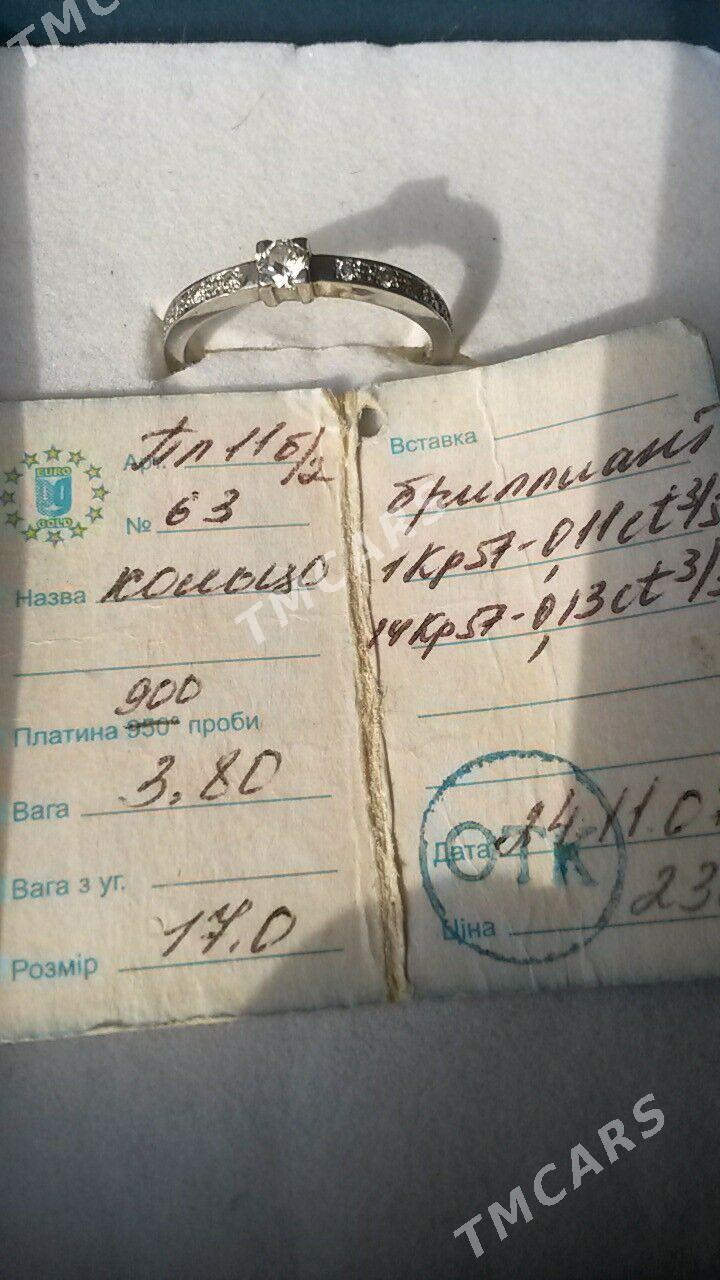 TMCARS
EURO
GOLD
Арт. Пл 11б/2
№ 63
Назва кольцо
900
Платина 950° проби
Вага 3,80
Вага з уг.
Розмір 17.0
Вставка
бриллиант
1Кр57-0,11ct 3/
14Кр57-0,13ct 3/
TMCARS
ОТК
Дата 24.11.0
Ціна 23
TMCARS